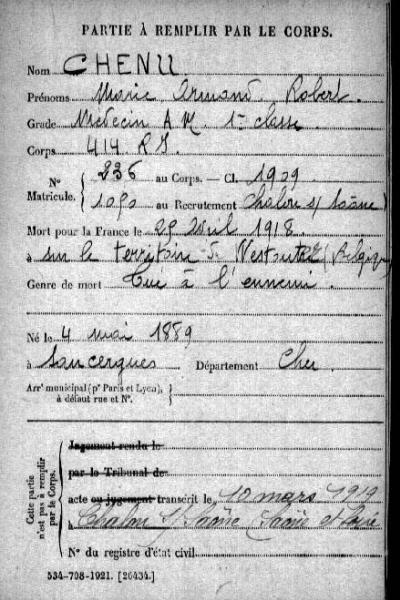 PARTIE À REMPLIR PAR LE CORPS.
Nom CHENU
Prénoms Marie Armand Robert.
Grade Médecin A M. 1re classe.
Corps 414. R I.
N° Matricule. 236 au Corps. — Cl. 1909
1090 au Recrutement Chalon s/ Saône
Mort pour la France le 29 Avril 1918.
à sur le territoire de Westoutre (Belgique)
Genre de mort Tué à l'ennemi.
Né le 4 mai 1889
à Sancergues Département Cher.
Arrt municipal (pr Paris et Lyon),
à défaut rue et N°.
Cette partie n'est pas à remplir par le Corps.
Jugement rendu le
par le Tribunal de
acte ou jugement transcrit le 10 mars 1919
à Chalon s/ Saône Saône et Loire
N° du registre d'état civil
534-708-1921. [26434.]